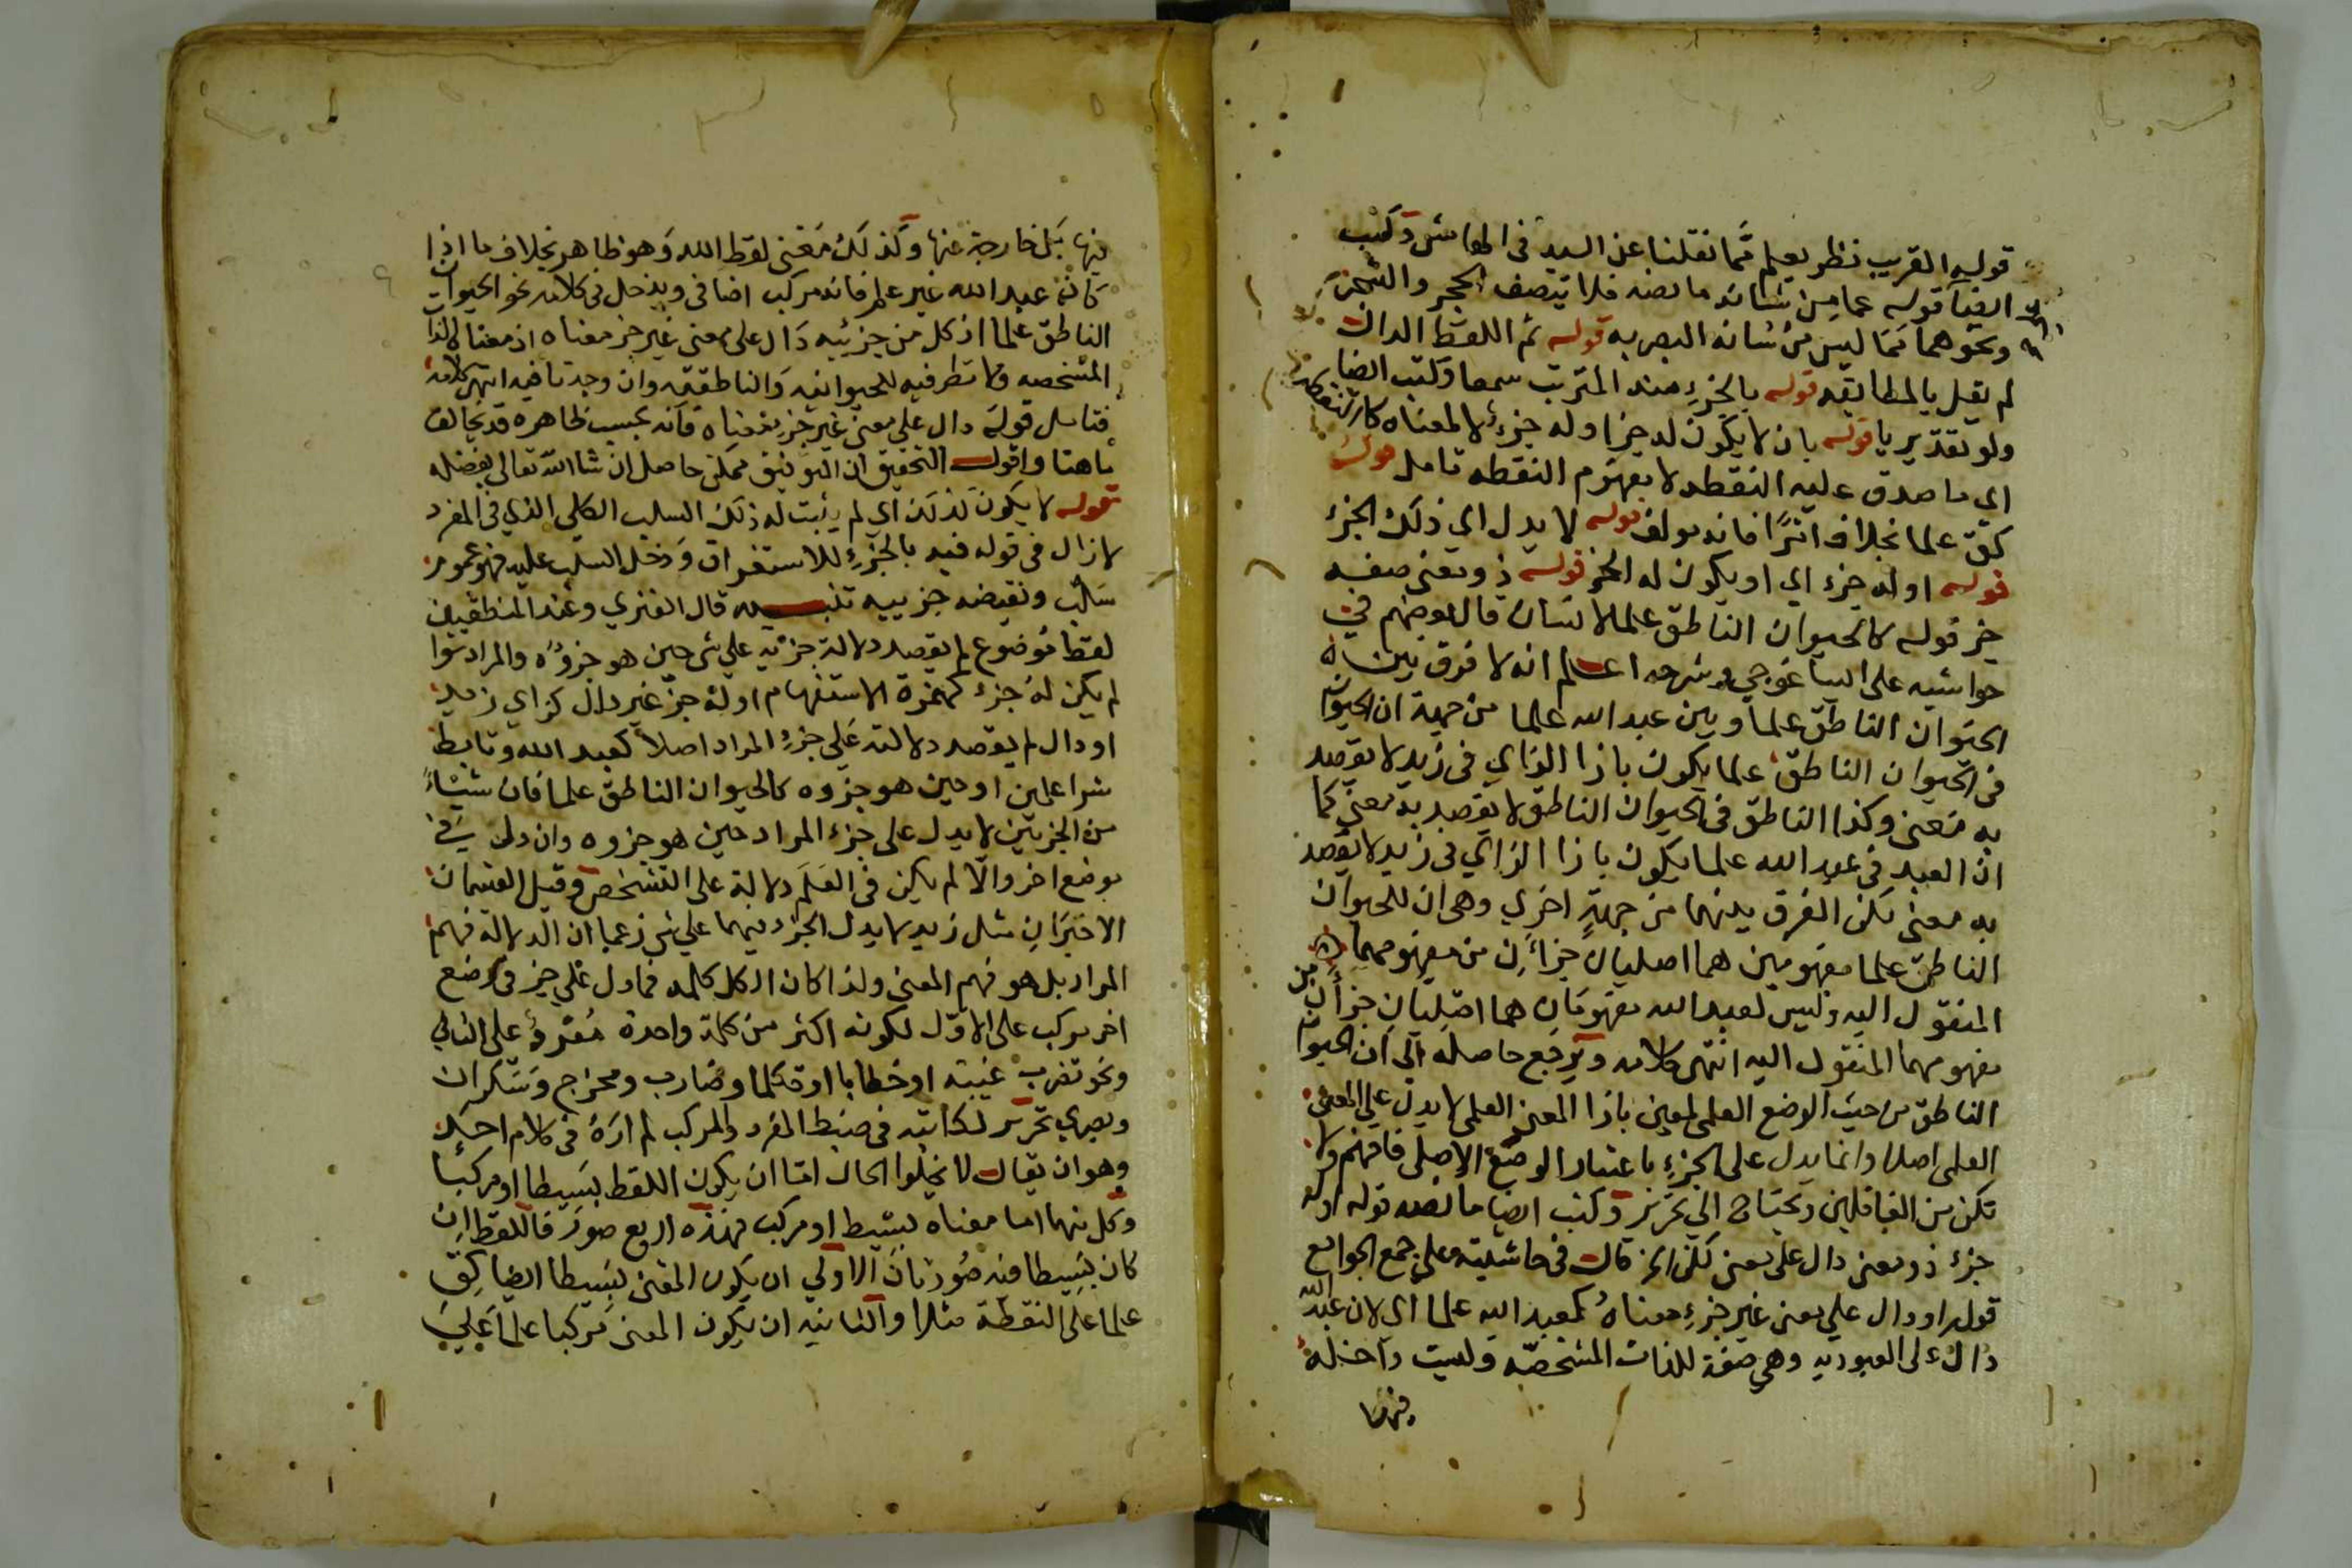 قوله القريب نظر يعلم مما نقلنا عن السيد في الهامش وكتب
ايضا قوله عما من شانه ما نصه فلا يتصف الحجر والشجر
ونحوهما مما ليس من شانه البصر به قوله ثم اللفظ الدال
لم يقل بالمطابقه قوله بالجزء منه المترتب سمعا وكتب ايضا
ولو تقديريا قوله بان لا يكون له جزا وله جزء لا لمعناه كالنقطه
اي ما صدق عليه النقطه لا مفهوم النقطه تامل قوله
كق علما بخلاف انزا فانه مولف قوله لا يدل اي ذلك الجزء
قوله اوله جزء اي او يكون له الخ قوله ذو معنى صفه
جز قوله كالحيوان الناطق علما لانسان قال بعضهم في
حواشيه على ايساغوجي وشرحه اعلم انه لا فرق بين
الحيوان الناطق علما وبين عبد الله علما من جهة ان الحيوان
في الحيوان الناطق علما يكون بازا الزاي في زيد لا يقصد
به معنى وكذا الناطق في الحيوان الناطق لا يقصد به معنى كما
ان العبد في عبد الله علما يكون بازا الزاي في زيد لا يقصد
به معنى لكن الفرق بينهما من جهة اخري وهي ان للحيوان
الناطق علما مفهومين هما اصليان جزان من مفهومهما
المنقول اليه وليس لعبد الله مفهومان هما اصليان جزان من
مفهومهما المنقول اليه انتهى كلامه ويرجع حاصله الى ان الحيوان
الناطق من حيث الوضع العلمي لمعين بازا المعنى العلمي لا يدل على المعنى
العلمي اصلا وانما يدل على الجزء باعتبار الوضع الاصلي فافهم ولا
تكن من الغافلين وتحتاج الي تحرير وكتب ايضا ما نصه قوله اوله
جزء ذو معنى دال على معنى لكن الخ قال في حاشيته على جمع الجوامع
قوله او دال على معنى غير جزء معناه كعبد الله علما اي لان عبد الله
دال على العبوديه وهي صفة للذات المشخصه وليست داخله
فيها
فيها بل خارجة عنها وكذلك معنى لفظ الله وهو ظاهر بخلاف ما اذا
كان عبد الله غير علم فانه مركب اضافي ويدخل في كلامه نحو الحيوان
الناطق علما اذ كل من جزئيه دال على معنى غير جز معناه اذ معناه الذات
المشخصه ولا نظر فيه للحيوانيه والناطقيه وان وجدتا فيه انتهى كلامه
فتامل قوله دال على معنى غير جزء معناه فانه بحسب ظاهره قد يخالف
ما هنا واقول التحقيق ان التوفيق ممكن حاصل ان شا الله تعالى بفضله
قوله لا يكون كذلك اي لم يثبت له ذلك السلب الكلي الذي في المفرد
لان ال في قوله فيه بالجزء للاستغراق ودخل السلب عليه فهو عموم
سلب ونقيضه جزييه تنبيه قال الفنري وعند المنطقيين
لفظ موضوع لم يقصد دلالة جزئيه على شي حين هو جزؤه والمراد سوا
لم يكن له جزء كهمزة الاستفهام اوله جز غير دال كزاي زيد
او دال لم يقصد دلالته على جزء المراد اصلا كعبد الله وتابط
شرا علمين او حين هو جزوه كالحيوان الناطق علما فان شيئا
من الجزئين لا يدل على جزء المراد حين هو جزوه وان دل في
بوضع اخر والا لم يكن في العلم دلالة على التشخص وقيل القسمان
الاخيران مثل زيد لا يدل الجزء فيهما على شي زعما ان الدلالة فهم
المراد بل هو فهم المعنى ولذا كان الكل كلمه فما دل على جز في وضع
اخر مركب على الاول لكونه اكثر من كلمة واحدة مفرد على الثاني
ونحو تضرب غيبة او خطابا او تكلما وضارب ومخرج وسكران
وبصري تحرير لكاتبه في ضبط المفرد والمركب لم اره في كلام احد
وهو ان يقال لا يخلوا الحال اما ان يكون اللفظ بسيطا او مركبا
وكل منهما اما معناه بسيط او مركب فهذه اربع صور فاللفظ ان
كان بسيطا فيه صورتان الاولي ان يكون المعنى بسيطا ايضا كق
علما على النقطة مثلا والثانيه ان يكون المعنى مركبا علما على